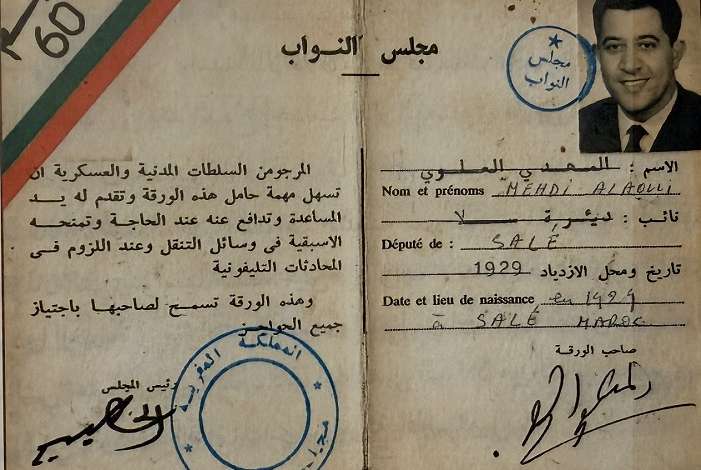 60
مجلس النواب
المرجومن السلطات المدنية والعسكرية ان
تسهل مهمة حامل هذه الورقة وتقدم له يد
المساعدة وتدافع عنه عند الحاجة وتمنحه
الاسبقية فى وسائل التنقل وعند اللزوم فى
المحادثات التليفونية
وهذه الورقة تسمح لصاحبها باجتياز
جميع الحواجز
رئيس المجلس
المملكة المغربية
مجلس
النواب
الاسم : المهدي العلوي
Nom et prénoms MEHDI ALAOUI
نائب : دئرة سلا
Député de : SALÉ
تاريخ ومحل الازدياد 1929
Date et lieu de naissance en 1929
à SALÉ MAROC
صاحب الورقة